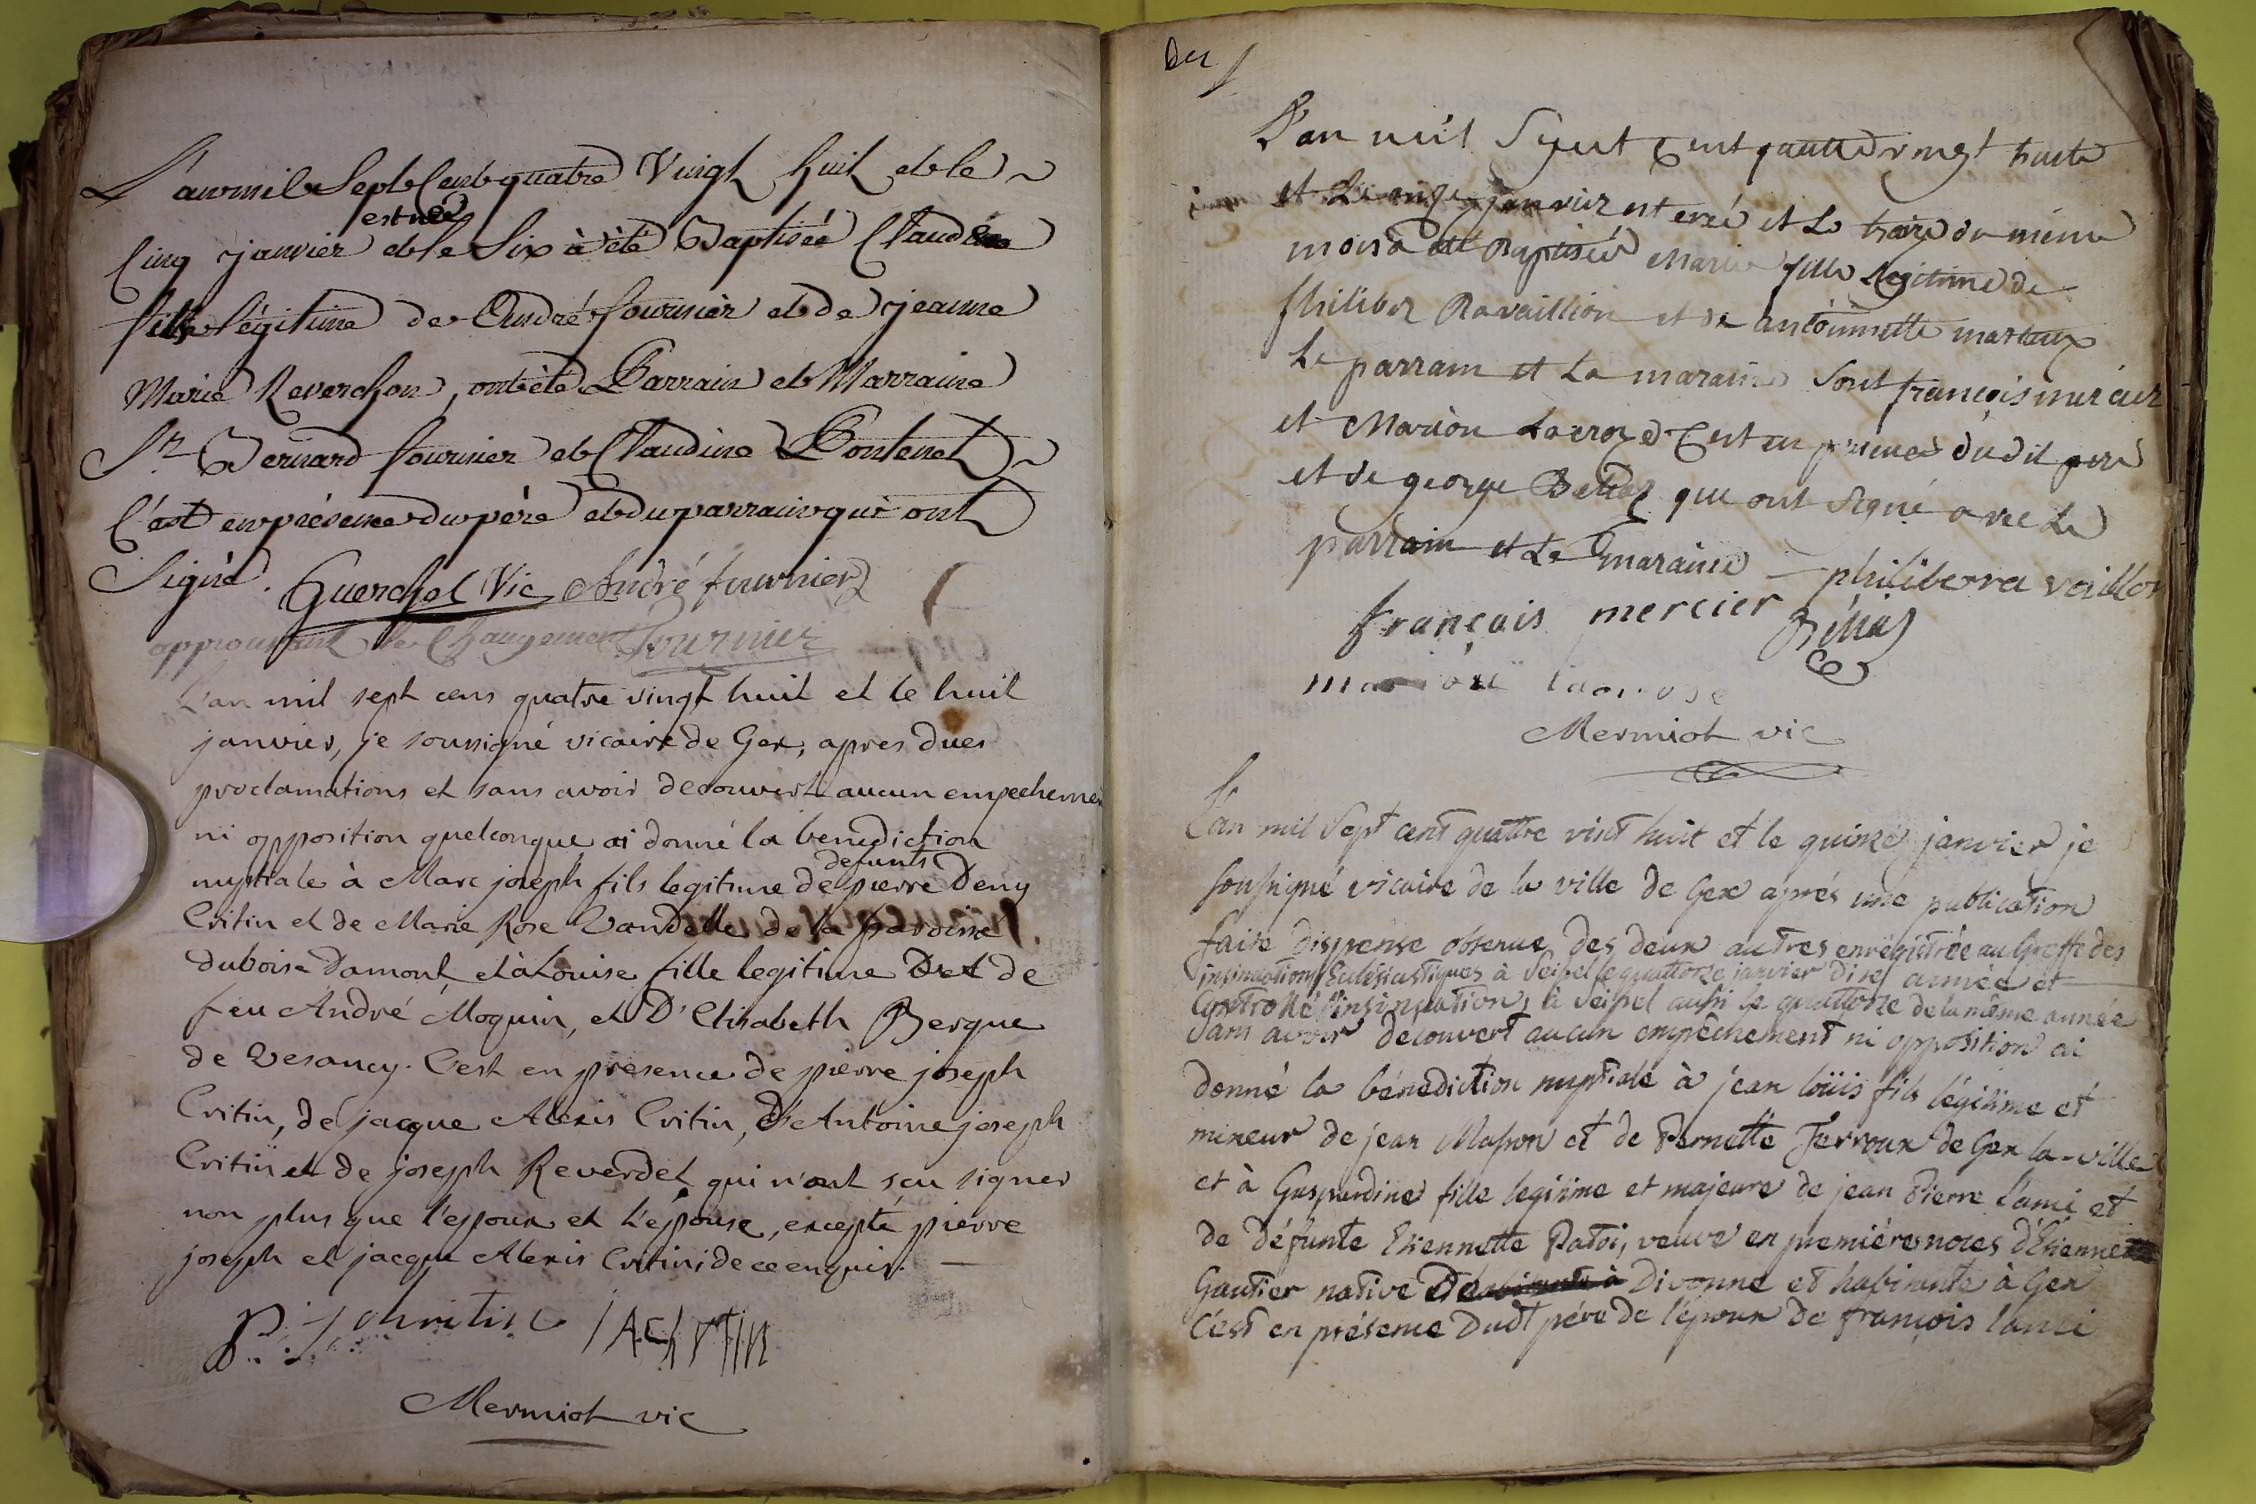 L'an mil Sept Cent quatre Vingt huit et le
est née
Cinq janvier et le Six à été Baptisée Claudine
fille légitime de André fournier et de jeanne
Marie Reverchon, ont été Parrain et Marraine
Sr Bernard fournier et Claudine Pontenet
C'est en présence du père et du parrain qui ont
Signé. Guerchet Vic André fournier
approuvant le Changement Fournier
L'an mil sept cens quatre vingt huit et le huit
janvier, je soussigné vicaire de Gex, apres dues
proclamations et sans avoir decouvert aucun empechemen
ni opposition quelconque ai donné la benediction
defunts
nuptiale à Marc joseph fils legitime de pierre Deny
Critin et de Marie Rose Vandelle de la paroisse
dubois-Damont, et à Louise fille legitime de
feu André Moquin, et D'Elisabeth Bergue
de Vesancy. C'est en presence de pierre joseph
Critin, de jacque Alexis Critin, d'Antoine joseph
Critin et de joseph Reverdet qui n'ont scu signer
non plus que l'epoux et l'epouse, excepté pierre
joseph et jacque Alexis Critin, de ce enquis.
P: j chritin
Mermiot vic
L'an mil Sept Cent quattre vingt huite
et Le onze janvier est neé et Le treize du même
mois a été Baptisée Marie fille legitime de
philiber Ravaillion et de antoinnette marteux
Le parrain et La maraine Sont françois mercier
et Marion Lacroze C'est en presence dudit pere
et de george Bettaz qui ont Signé avec Le
parrain et La maraine philiber ra voillon
françois mercier Béttaz
marion lacrose
Mermiot vic
L'an mil Sept cent quattre vint huit et le quinze janvier je
soussigné vicaire de la ville de Gex aprés une publication
faite dispense obtenue des deux autres enrégistrée au Greffe des
insinuations Eclésiastiques à Seissel le quattorze janvier dite année et
Controllé l'insinuation, à Seissel aussi le quattorze de la même année
Sans avoir découvert aucun empêchement ni opposition ai
donné la bénédiction nuptiale à jean loüis fils légitime et
mineur de jean Masson et de Pernette Ferroux de Gex la-ville
et à Gaspardine fille legitime et majeure de jean Pierre l'ami et
de défunte Etiennette Patoi, veuve en premiéres noces d'Etienne
Gautier native Divonne et habitante à Gex
C'est en présence dudt pére de l'époux de françois l'ami